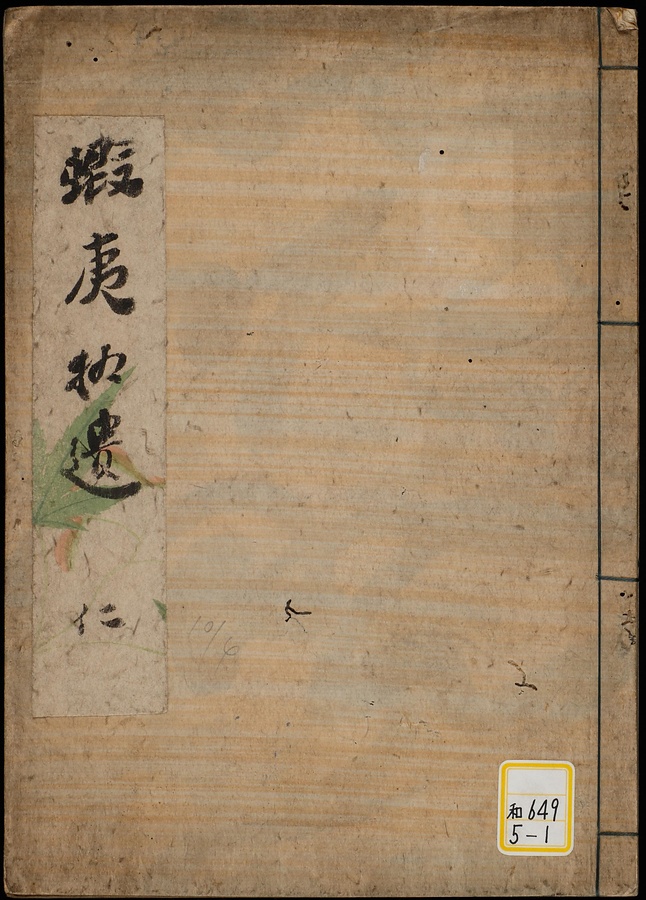 蝦夷拾遺 仁
10/6
和649
5-1